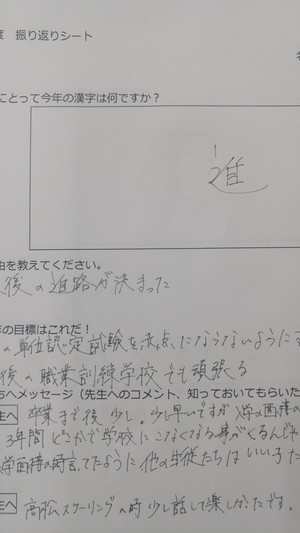 度 振り返りシート
にとって今年の漢字は何ですか？
進
由を教えてください。
後の進路が決まった
年の目標はこれだ！
の単位認定試験を赤点にならないように
後の職業訓練学校でも頑張る
ちへメッセージ（先生へのコメント、知っておいてもらいた
生へ 卒業まで後少し。少し早いですが 入学の面接の
3年間 どこかで学校にこなくなる事がくるんじゃ
学面接の時言ってたように 他の生徒たちは いい子た
生へ 高松スクーリングの時 少し話して楽しかたです。